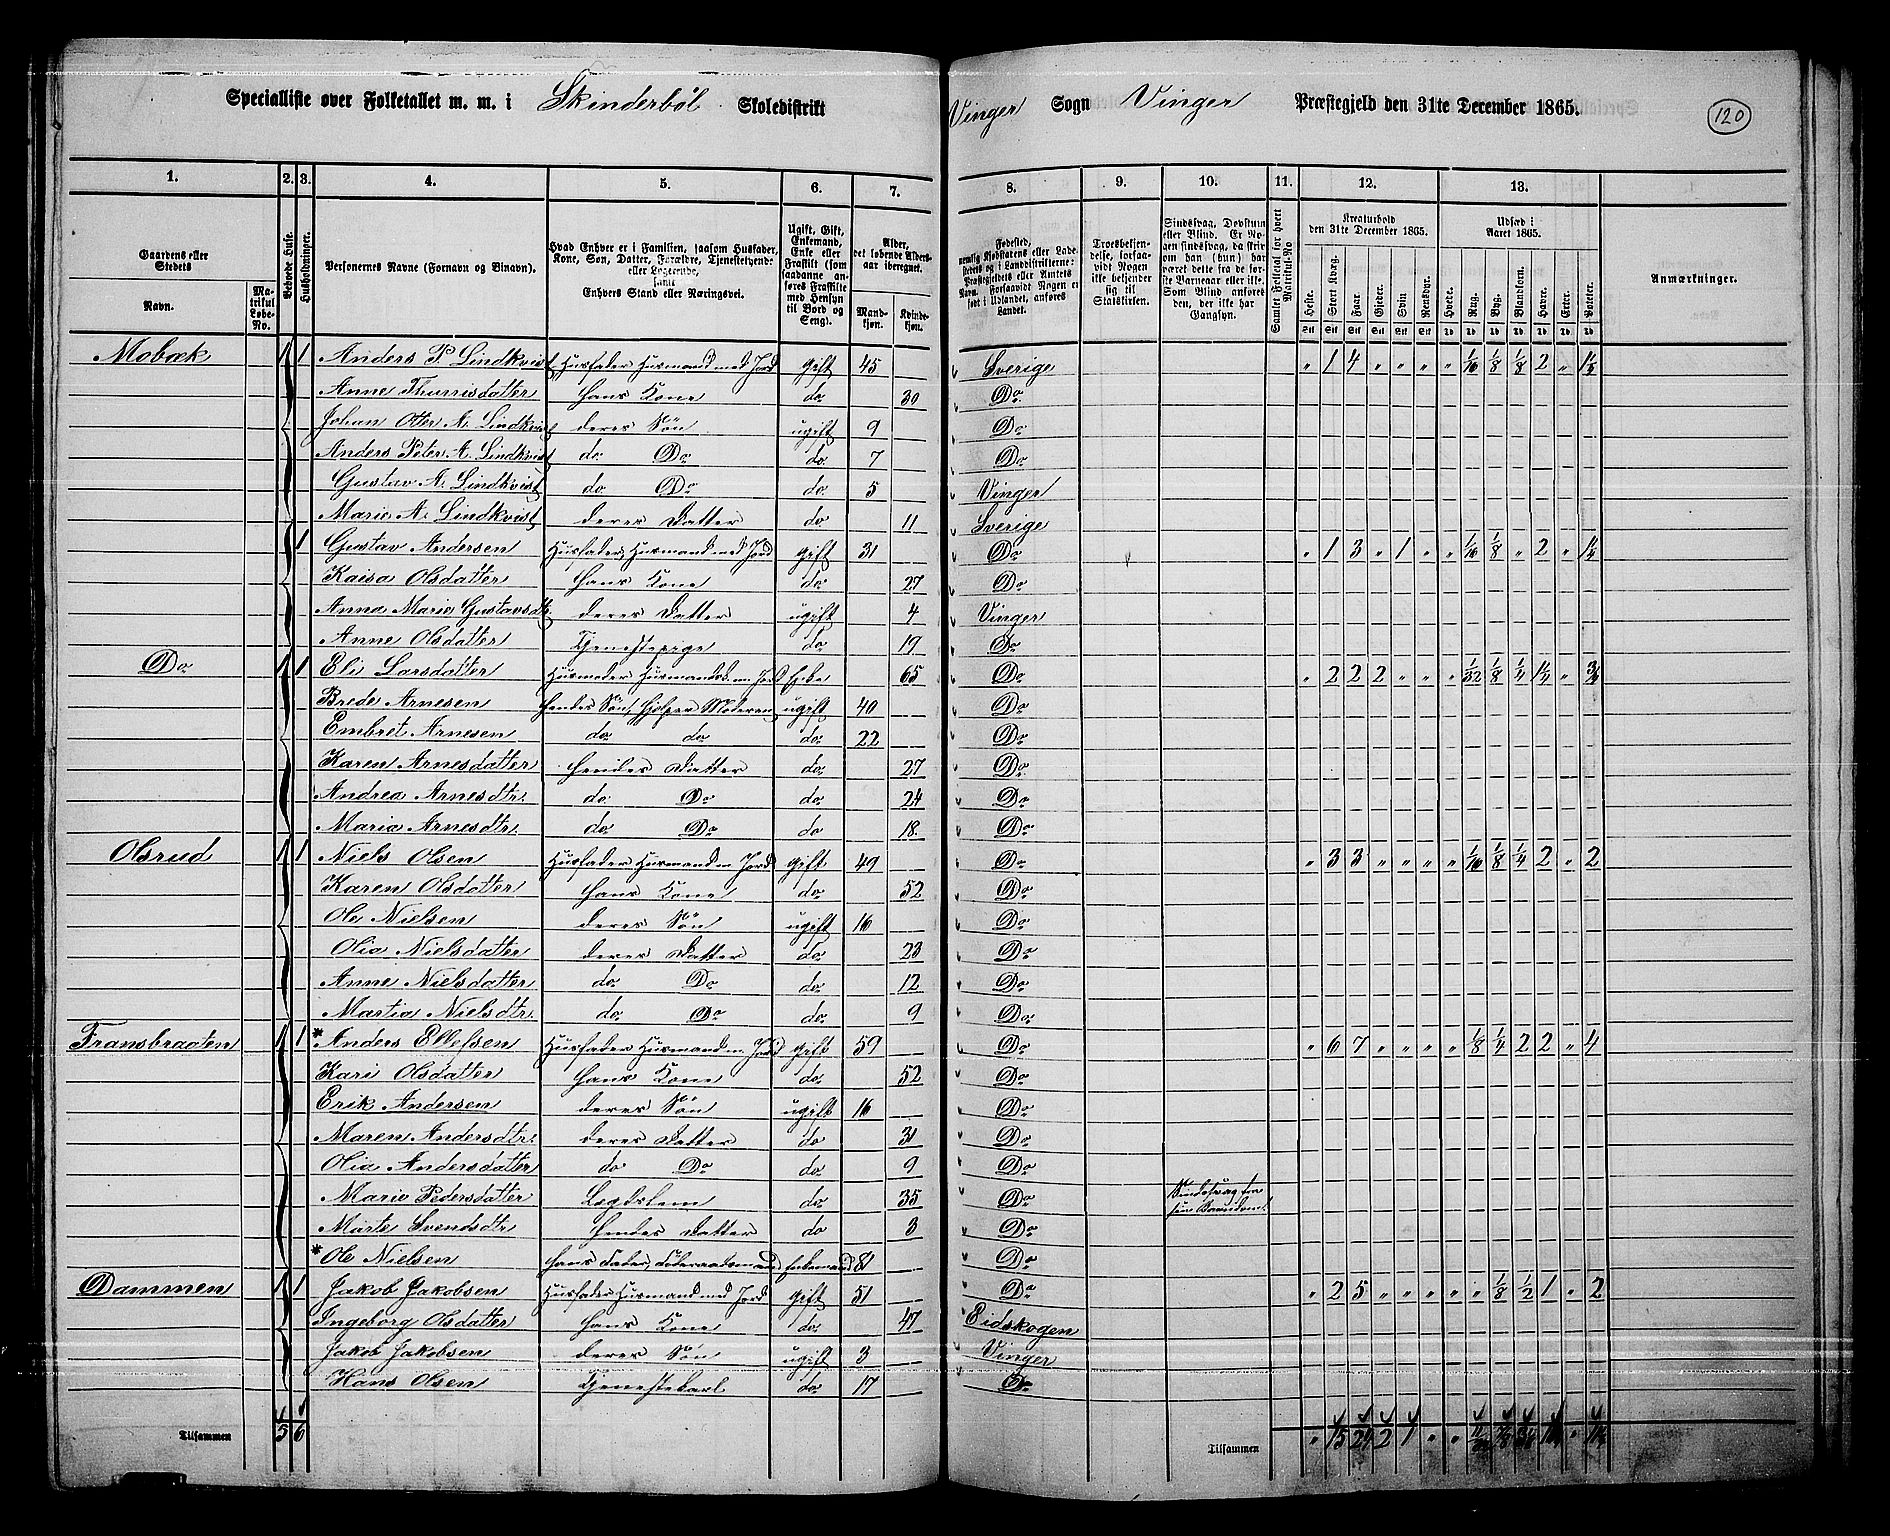 Specialliste over Folketallet m. m. i Skinderböl Skoledistrikt Vinger Sogn Vinger Præstegjeld den 31te December 1865. 120
1. 2. 3. 4. 5. 6. 7. 8. 9. 10. 11. 12. 13.
Gaardens eller Stedets Navn. Matrikul Løbe-No. Beboede Huse. Husholdninger. Personernes Navne (Fornavn og Binavn). Hvad Enhver er i Familien, saasom Husfader, Kone, Søn, Datter, Forældre, Tjenestetyende eller Logerende, samt Enhvers Stand eller Næringsvei. Ugift, Gift, Enkemand, Enke eller Fraskilt (som saadanne anføres Fraskilte med Hensyn til Bord og Seng). Alder, det løbende Aldersaar iberegnet. Mandkjøn. Kvindekjøn.
Fødested, nemlig Kjøbstadens eller Ladestedets og i Landdistrikterne: Præstegjeldets eller Amtets Navn. Forsaavidt Nogen er født i Udlandet, anføres Landet. Troesbekjendelse, forsaavidt Nogen ikke bekjender sig til Statskirken. Sindssvag, Døvstum eller Blind. Samlet Folketal for hvert Matrikul-No Kreaturhold den 31te December 1865. Udsæd i Aaret 1865. Anmærkninger.
Heste. Stort Kvæg. Faar. Gjeder. Svin Rensdyr. Hvede. Rug. Byg. Blandkorn. Havre. Erter. Poteter.
Mobæk 1 1 Anders P. Lindkvist Husfader Husmand med Jord gift 45 Sverige " 1 4 " " " " 1/16 1/8 1/8 2 "
Anne Thurrisdatter hans Kone do 30 Do
Johan Otter A. Lindkvist deres Søn ugift 9 Do
Anders Peter A. Lindkvist do Do do 7 Do
Gustav A. Lindkvist do Do do 5 Vinger
Marie A. Lindkvist deres Datter do 11 Sverige
1 Gustav Andersen Husfader, Husmand med Jord gift 31 Do " 1 3 " 1 " " 1/16 1/8 " 2 "
Kaisa Olsdatter hans Kone do 27 Do
Anna Marie Gustavsdtr deres Datter ugift 4 Vinger
Anne Olsdatter Tjenestepige do 19 Do
Do 1 1 Eli Larsdatter Husmoder Husmandsk. m. Jord Enke 65 Do " 2 2 2 " " " 1/32 1/8 1/4 1 1/4 "
Brede Arnesen hendes Søn, hjelper Moderen ugift 40 Do
Embret Arnesen do do do 22 Do
Karen Arnesdatter hendes Datter do 27 Do
Andrea Arnesdtr. do Do do 24 Do
Maria Arnesdtr. do Do do 18 Do
Olsrud 1 1 Niels Olsen Husfader Husmand m Jord gift 49 Do " 3 3 " " " " 1/16 1/8 1/4 2 " 2
Karen Olsdatter hans Kone do 52 Do
Ole Nielsen deres Søn ugift 16 Do
Olia Nielsdatter deres Datter do 23 Do
Anne Nielsdatter do Do do 12 Do
Martia Nielsdtr. do Do do 9 Do
Fransbraaten 1 1 * Anders Ellefsen Husfader Husmand m. Jord gift 59 Do " 6 7 " " " " 1/8 1/4 2 2 " 4
Kari Olsdatter hans Kone do 52 Do
Erik Andersen deres Søn ugift 16 Do
Maren Andersdtr. deres Datter do 31 Do
Olia Andersdatter do Do do 9 Do
Marie Pedersdatter Lægdslem do 35 Do Sindssvag fra sin Barndom
Marte Svendsdtr hendes Datter do 3 Do
* Ole Nielsen hans Fader, Føderaadsmand Enkemand 81 Do
Dammen 1 1 Jakob Jakobsen Husfader Husmand med Jord gift 51 Do " 2 5 " " " " " 1/8 1/2 1 " 2
Ingeborg Olsdatter hans Kone do 47 Eidskogen
Jakob Jakobsen deres Søn ugift 3 Vinger
Hans Olsen Tjenestekarl do 17 Do
Tilsammen 5 6 Tilsammen " 15 24 2 1 " "